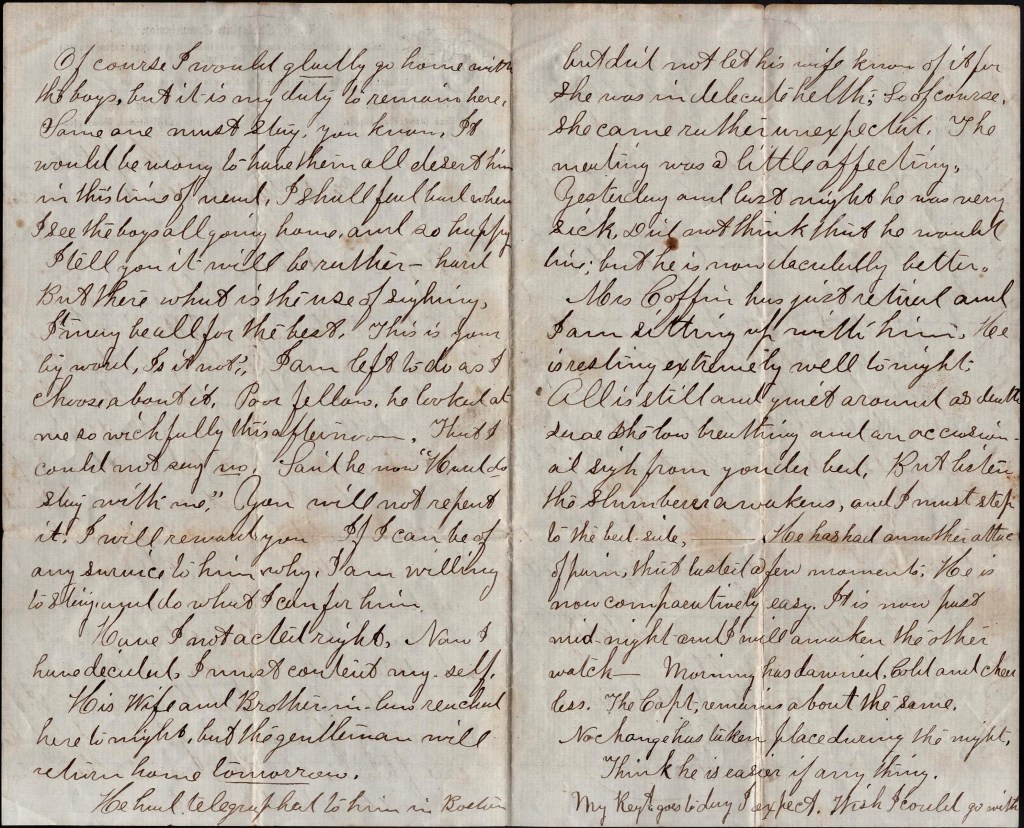 Of course I would gladly go home with
the boys, but it is my duty to remain here,
Some one must stay, you know, It
would be wrong to have them all desert him
in this time of need, I shall feel bad when
I see the boys all going home, and so happy
I tell you it will be ruther - hard
But there what is the use of sighing,
It may be all for the best. This is your
by word, Is it not?, I am left to do as I
choose about it. Poor fellow, he looked at
me so wichfully this afternoon, That I
could not say no. Said he now "
stay with me." You will not repent
it. I will reward you If I can be of
any survice to him why, I am willing
to stay and do what I can for him.
Have I not acted right, Now I
have decided, I must content my-self.
His Wife and Brother-in-law reached
here to night, but the gentleman will
return home tomorrow.
He had telegraphed to him in Boston
but did not let his wife know of it for
she was in delecate helth; So of course,
she came ruther unexpectit. The
meating was a little affecting,
Yesterday and last night he was very
sick, Did not think that he would
live; but he is now decidedly better.
Mrs Coffin has just retired and
I am sitting up with him, He
is resting extremely well to night;
All is still and quiet around as death
save the low breathing and an accasion-
al sigh from yonder bed, But listen
the slumberer awakens, and I must step
to the bed-side, —— He has had annother attac
of pain, that lasted a few moments; He is
now comparetively easy. It is now past
mid-night and I will awaken the other
watch — Morning has dawned, Cold and cheer
less. The Capt, remains about the same.
No change has taken place during the night,
Think he is easier if any thing.
My Regt goes to day I expect. Wish I could go with